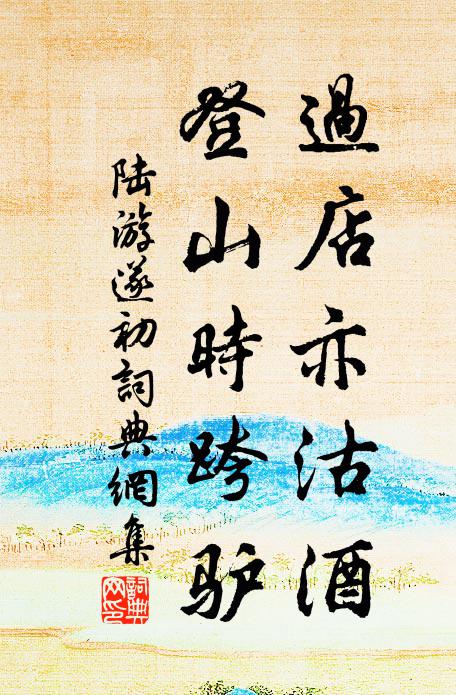 過店亦沽酒
登山時跨驴
陆游遂初詞典網集
詞典网印